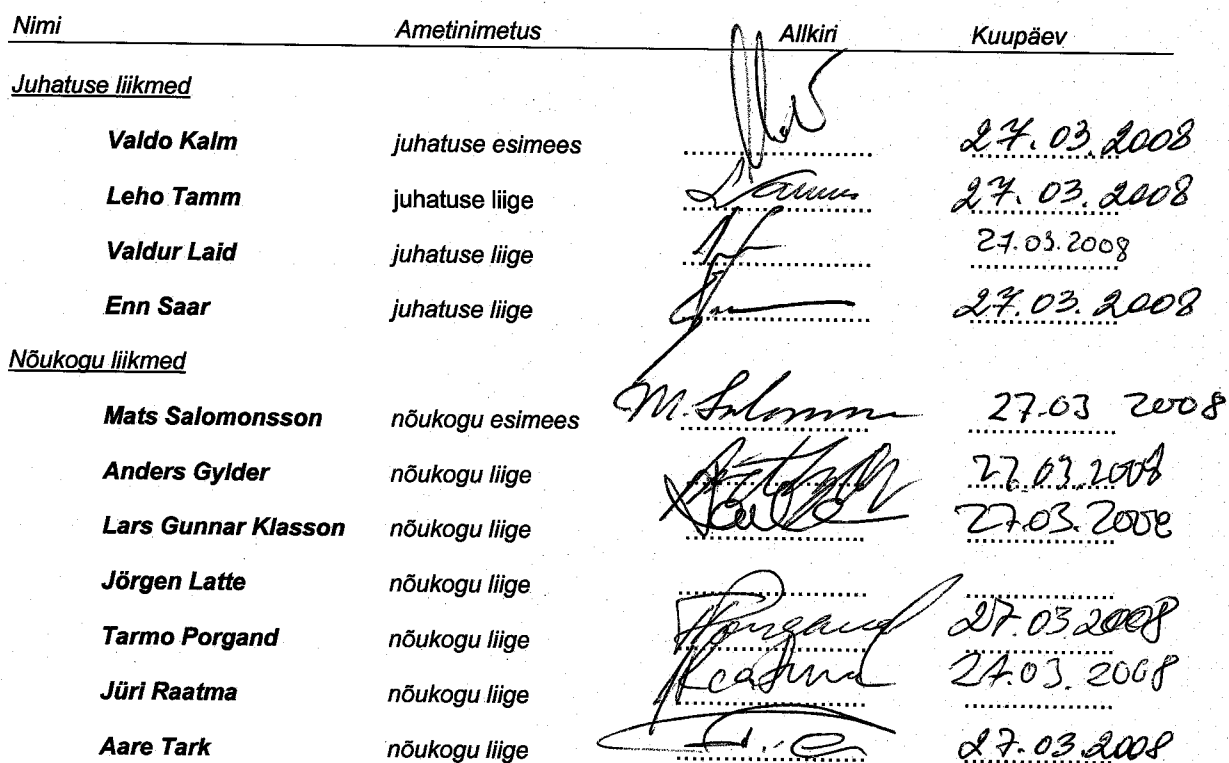 Nimi Ametinimetus Allkiri Kuupäev
Juhatuse liikmed
Valdo Kalm juhatuse esimees 27.03.2008
Leho Tamm juhatuse liige 27.03.2008
Valdur Laid juhatuse liige 27.03.2008
Enn Saar juhatuse liige 27.03.2008
Nõukogu liikmed
Mats Salomonsson nõukogu esimees 27.03 2008
Anders Gylder nõukogu liige 27.03.2008
Lars Gunnar Klasson nõukogu liige 27.03.2008
Jörgen Latte nõukogu liige
Tarmo Porgand nõukogu liige Porgand 27.03.2008
Jüri Raatma nõukogu liige 27.03.2008
Aare Tark nõukogu liige 27.03.2008